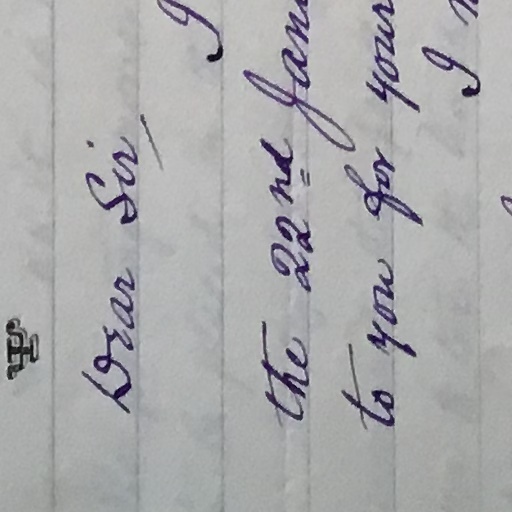 Dear Sir,
I
the 22nd Jan
to you for your
I